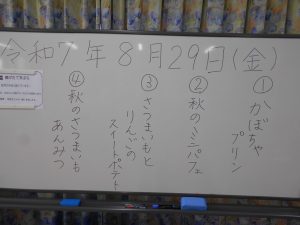 令和7年8月29日(金)
①かぼちゃ
プリン
②秋のミニパフェ
③さつまいもと
りんごの
スイートポテト
④秋のさつまいも
あんみつ